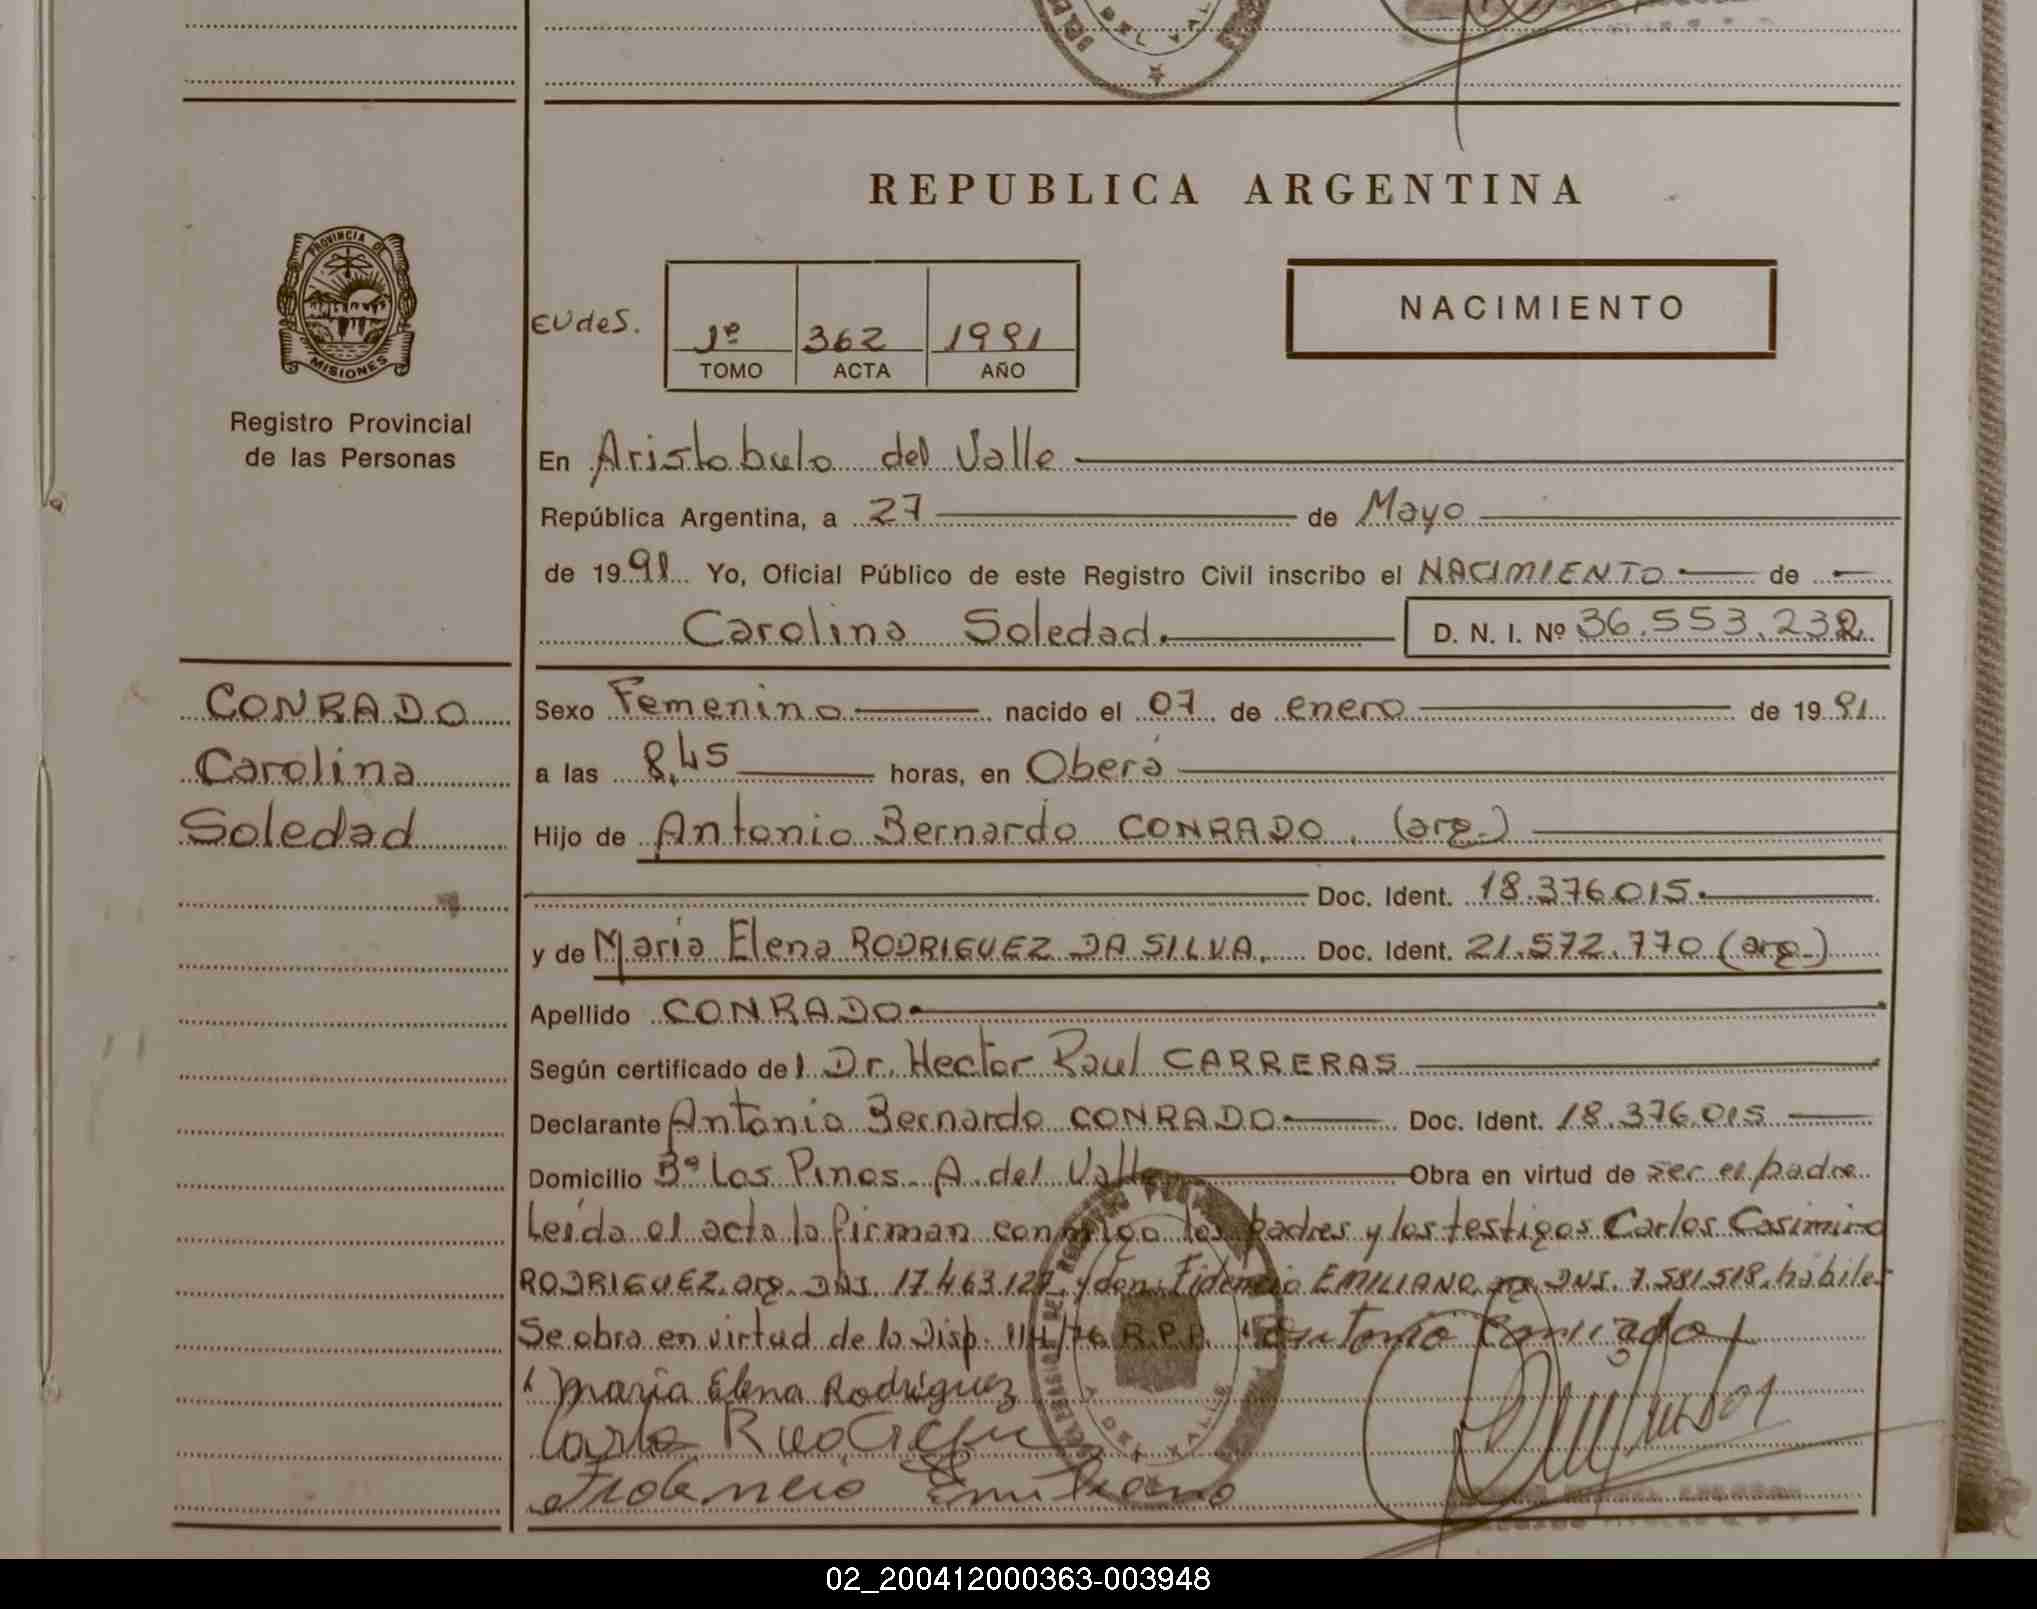 REPUBLICA ARGENTINA
PROVINCIA DE MISIONES
Registro Provincial
de las Personas
CUdeS.
1º 362 1991
TOMO ACTA AÑO
NACIMIENTO
En Aristobulo del Valle
República Argentina, a 27 de Mayo
de 1991 Yo, Oficial Público de este Registro Civil inscribo el NACIMIENTO de
Carolina Soledad. D. N. I. Nº 36.553.232
CONRADO
Carolina
Soledad
Sexo Femenino nacido el 07 de enero de 1991
a las 8,45 horas, en Oberá
Hijo de Antonio Bernardo CONRADO. (arg.)
Doc. Ident. 18.376.015.
y de María Elena RODRIGUEZ DA SILVA. Doc. Ident. 21.572.770 (arg.)
Apellido CONRADO
Según certificado del Dr. Hector Raul CARRERAS
Declarante Antonio Bernardo CONRADO Doc. Ident. 18.376.015
Domicilio Bº Los Pinos. A. del Valle Obra en virtud de ser el padre
Leída el acta la firman conmigo los padres y los testigos Carlos Casimiro
RODRIGUEZ. arg. DNI. 17.463.127 y don: Fidencio EMILIANO, arg. DNI. 7.581.518. hábiles
Se obra en virtud de la Disp. 114/76 R.P.P. Antonio Conrado
María Elena Rodríguez
Fidencio Emiliano
02_200412000363-003948